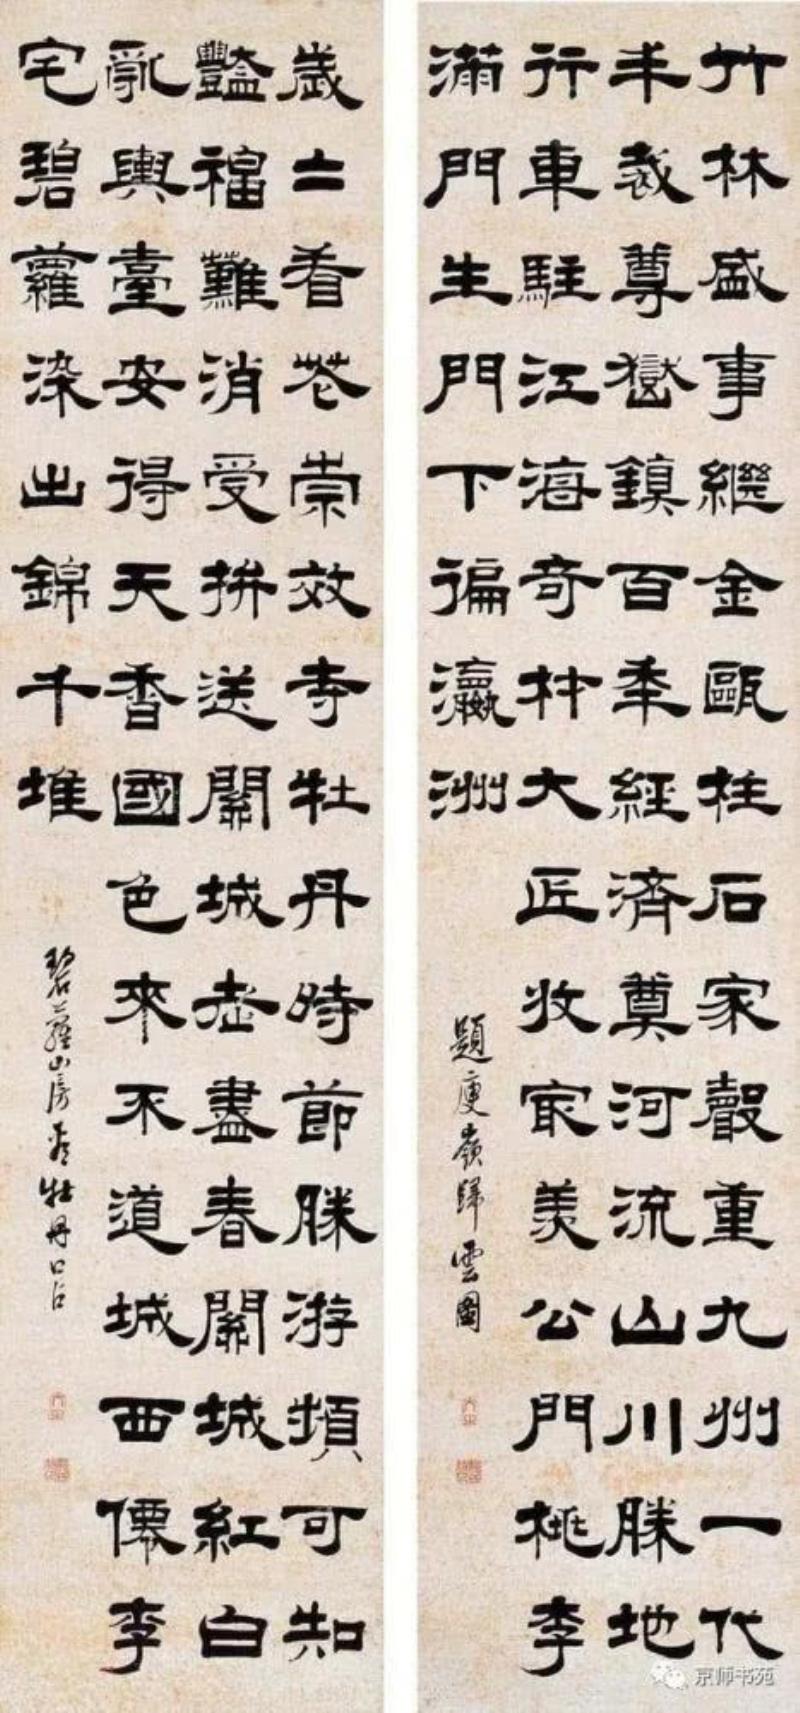 竹林盛事繼金甌柱石家聲重九州一代
丰裁尊嶽鎮百年經濟奠河流山川勝地
行車駐江海奇材大匠收冣美公門桃李
滿門生門下徧瀛洲
題庾嶺歸雲圖
歲二看花崇效寺牡丹時節勝游頻可知
豔福難消受拚送關城老盡春關城紅白
亂輿臺安得天香國色來不道城西李
宅碧蘿染出錦千堆
碧蘿山房看牡丹口占
京师书苑